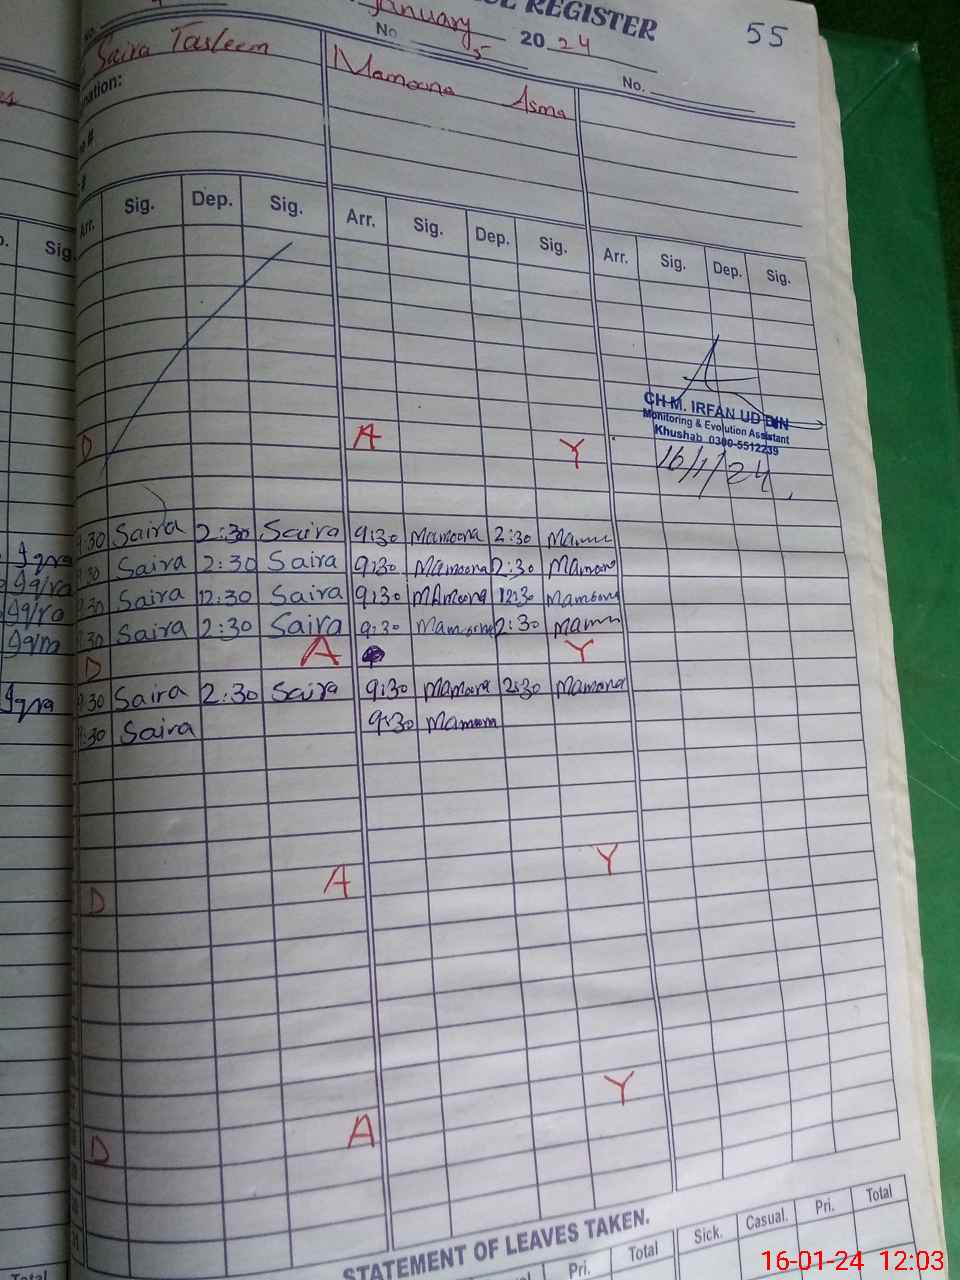 REGISTER 55
January 2024
No. 5 No.
Saira Tasleem Mamoona Asma
nation:
Sig. Dep. Sig. Arr. Sig. Dep. Sig. Arr. Sig. Dep. Sig.
CH M. IRFAN UD DIN
Monitoring & Evolution Assistant
Khushab 0300-5512239
D A Y
16/1/24
9:30 Saira 2:30 Saira 9:30 Mamoona 2:30
Iqra 9:30 Saira 2:30 Saira 9:30 Mamoona 2:30 Mamoona
Iqra 9:30 Saira 12:30 Saira 9:30 MAmoona 12:30 Mamoona
Iqra 9:30 Saira 2:30 Saira 9:30 Mamoona 2:30
Iqra
D A Y
Iqra 9:30 Saira 2:30 Saira 9:30 Mamoona 2:30 Mamona
9:30 Saira 9:30 Mamoon
D A Y
D A Y
STATEMENT OF LEAVES TAKEN.
Total Pri. Total Sick. Casual. Pri. Total
16-01-24 12:03